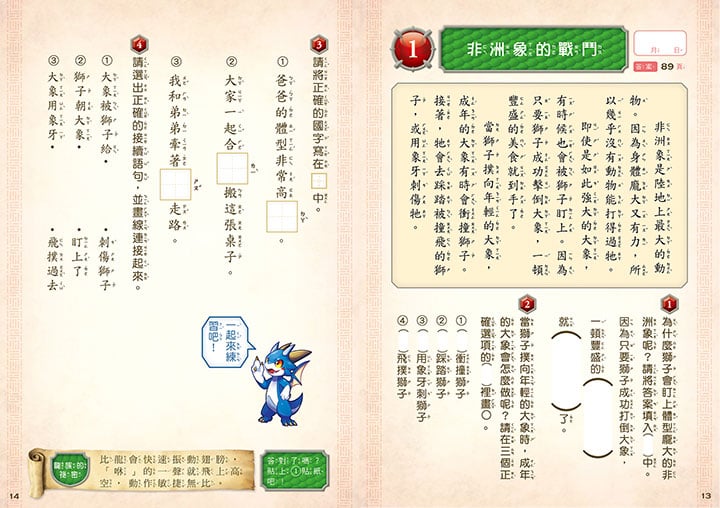 月 日
答案 89頁
非洲象的戰鬥
1
非洲象是陸地上最大的動
物。因為身體龐大又有力，所
以幾乎沒有動物能打得過牠。
即使是如此強大的大象，
有時候也會被獅子盯上。因為
只要獅子成功擊倒大象，一頓
豐盛的美食就到手了。
當獅子撲向年輕的大象，
成年的大象有時會衝撞獅子。
接著，牠會去踩踏被撞飛的獅
子，或用象牙刺傷牠。
1
為什麼獅子會盯上體型龐大的非
洲象呢？請將答案填入（ ）中。
因為只要獅子成功打倒大象，
一頓豐盛的（ ）
就（ ）了。
2
當獅子撲向年輕的大象時，成年
的大象會怎麼做呢？請在三個正
確選項的（ ）裡畫○。
①（ ）衝撞獅子
②（ ）踩踏獅子
③（ ）用象牙刺獅子
④（ ）飛撲獅子
13
3
請將正確的國字寫在□中。
① 爸爸的體型非常高□。
ㄉㄚˋ
② 大家一起合□搬這張桌子。
ㄌㄧˋ
③ 我和弟弟牽著□走路。
ㄕㄡˇ
4
請選出正確的接續語句，並畫線連接起來。
① 大象被獅子給・ ・刺傷獅子
② 獅子朝大象・ ・盯上了
③ 大象用象牙・ ・飛撲過去
一起來練
習吧！
答對了嗎？
貼上①貼紙
吧！
龍族的
祕密
比龍會快速振動翅膀，
「咻」的一聲就飛上高
空，動作敏捷無比。
14